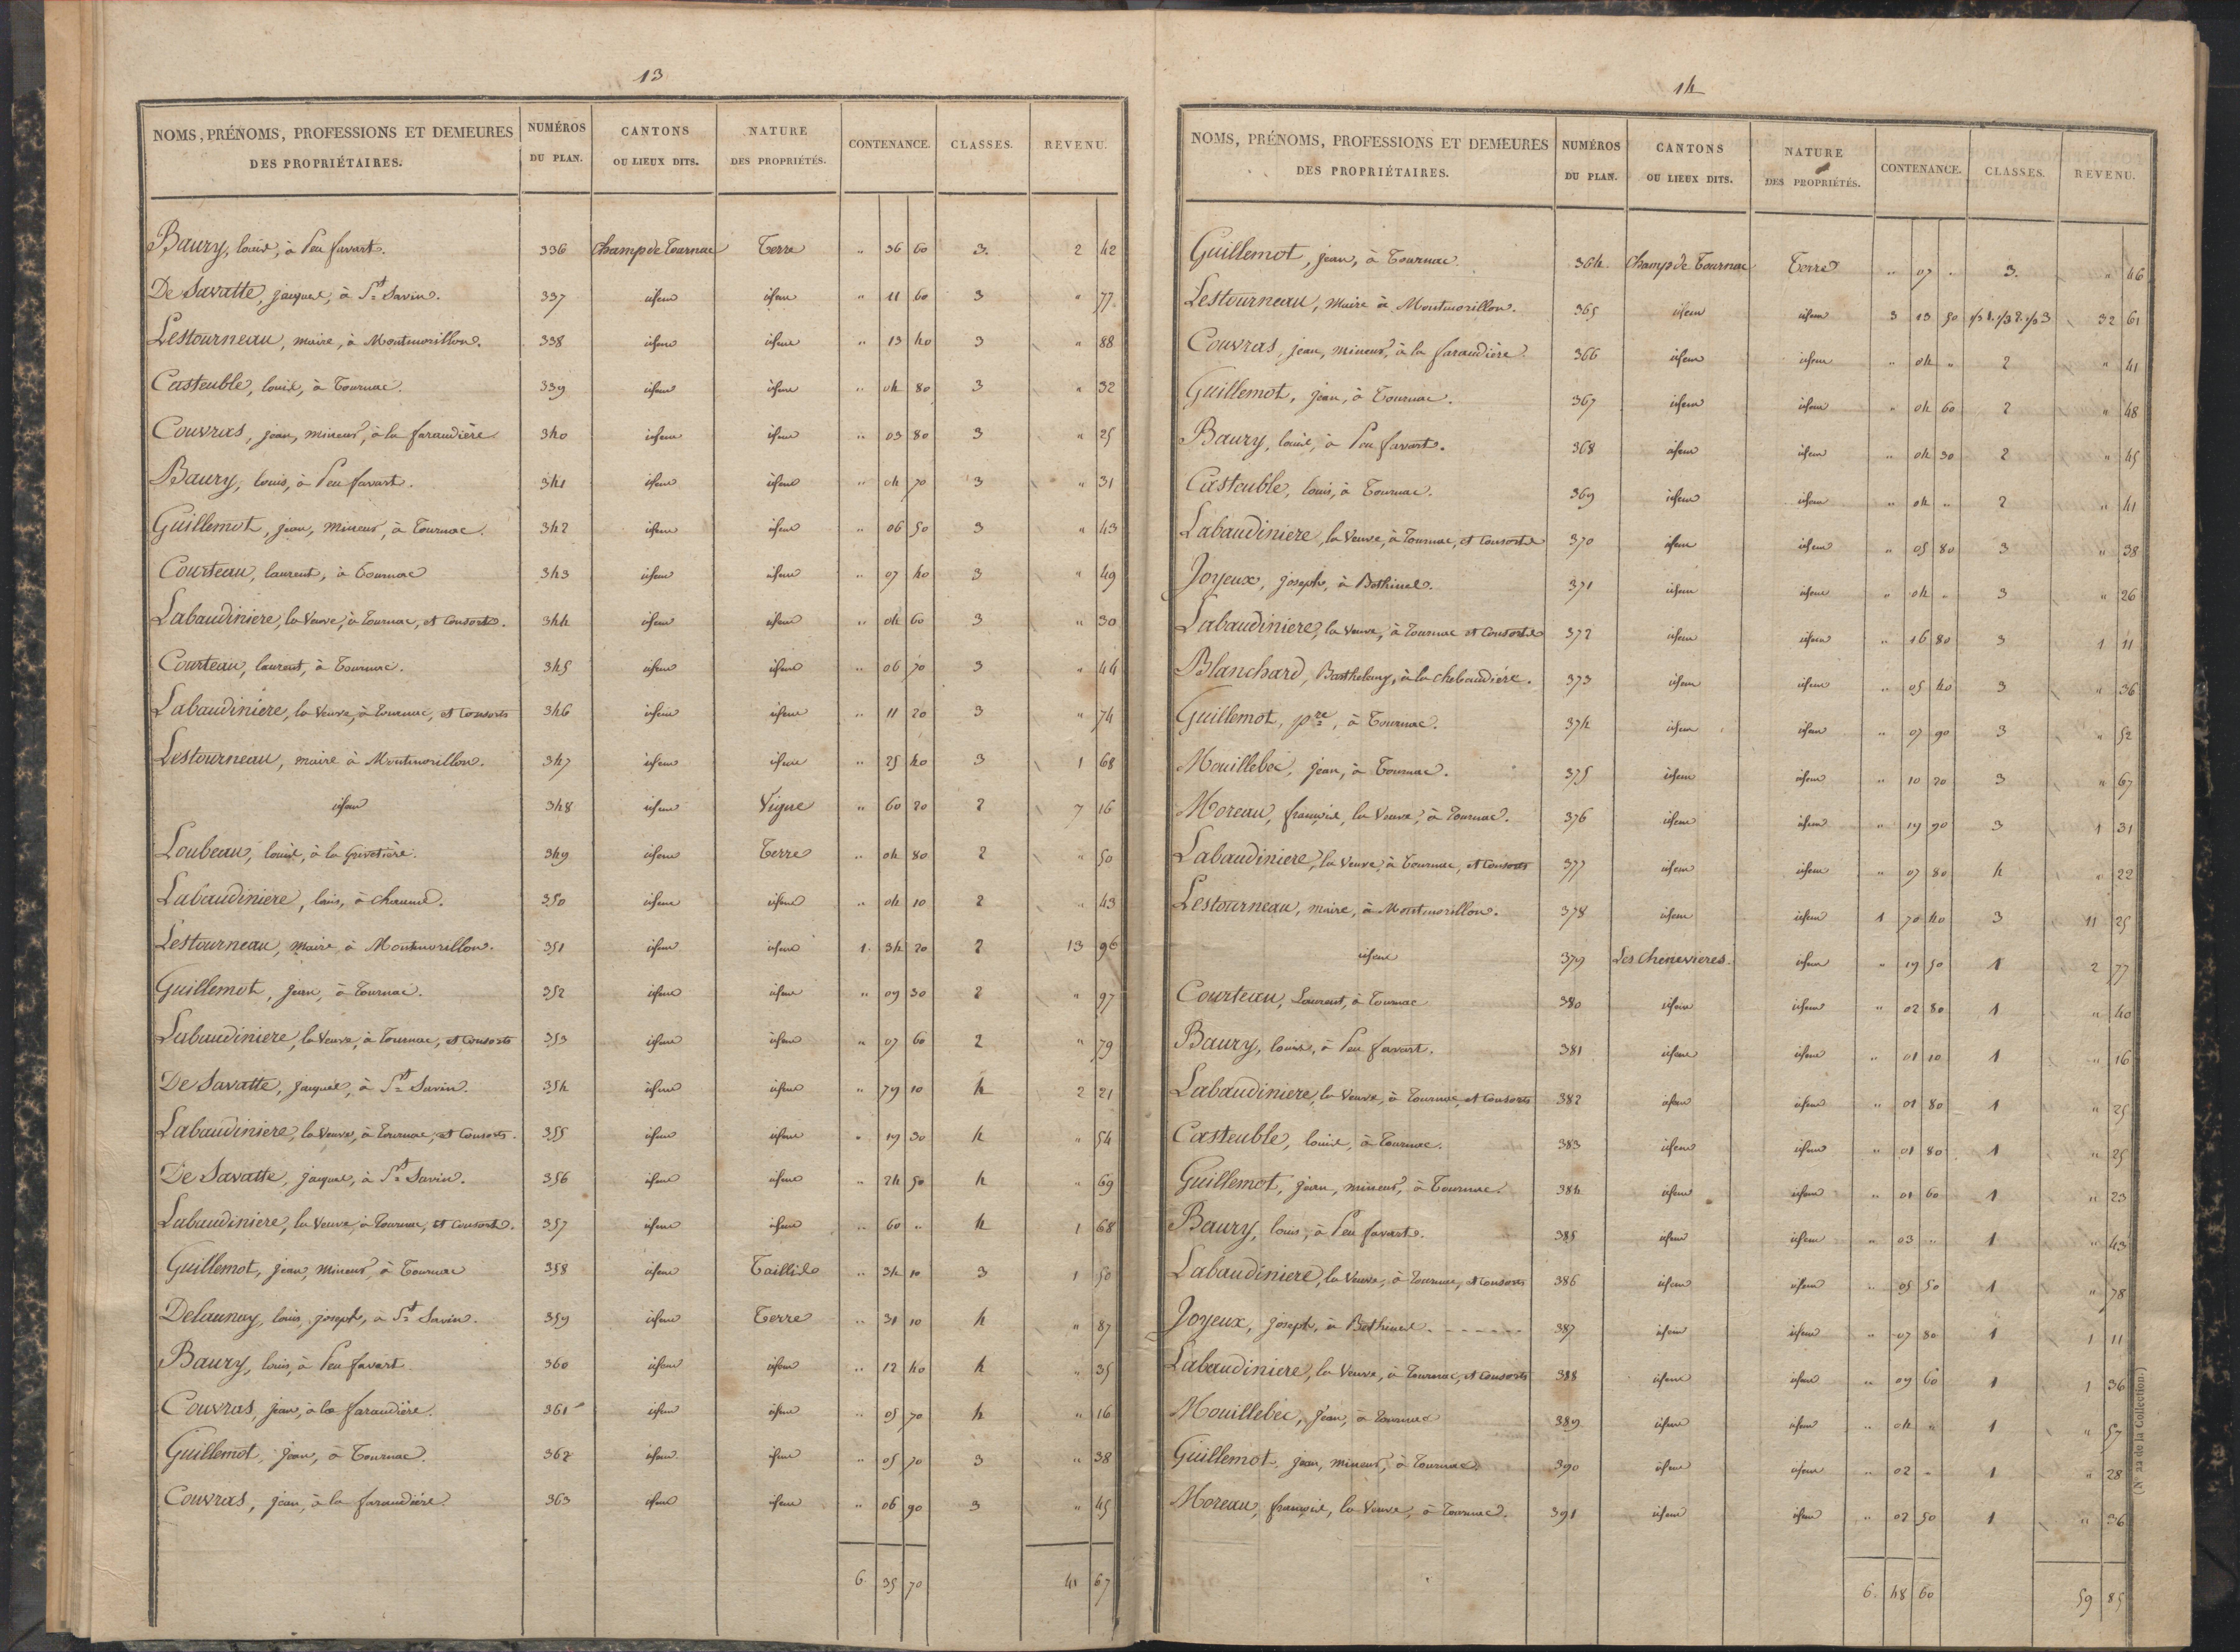 13
NOMS, PRÉNOMS, PROFESSIONS ET DEMEURES DES PROPRIÉTAIRES. NUMÉROS DU PLAN. CANTONS OU LIEUX DITS. NATURE DES PROPRIÉTÉS. CONTENANCE. CLASSES. REVENU.
Baury, louis, à Peu favart. 336 Champ de Tournac Terre " 36 60 3. 2 42
De Savatte, jacques, à St Savin. 337 idem idem " 11 60 3 " 77
Lestourneau, maire, à Montmorillon. 338 idem idem " 13 40 3 " 88
Casteuble, louis, à Tournac. 339 idem idem " 04 80 3 " 32
Couvras, jean, mineur, à la faraudière 340 idem idem " 03 80 3 " 25
Baury, louis, à Peu favart. 341 idem idem " 04 70 3 " 31
Guillemot, jean, mineur, à Tournac. 342 idem idem " 06 50 3 " 43
Courteau, laurent, à Tournac 343 idem idem " 07 40 3 " 49
Labaudiniere, la Veuve, à Tournac, et Consorts. 344 idem idem " 04 60 3 " 30
Courteau, laurent, à Tournac. 345 idem idem " 06 70 3 " 44
Labaudiniere, la Veuve, à Tournac, et Consorts 346 idem idem " 11 20 3 " 74
Lestourneau, maire à Montmorillon. 347 idem idem " 25 40 3 1 68
idem 348 idem Vigne " 60 20 2 7 16
Loubeau, louis, à la Grivetière. 349 idem Terre " 04 80 2 " 50
Labaudiniere, louis, à 350 idem idem " 04 10 2 " 43
Lestourneau, maire à Montmorillon. 351 idem idem 1. 34 20 2 13 96
Guillemot, jean, à Tournac. 352 idem idem " 09 30 2 " 97
Labaudiniere, la Veuve, à Tournac, et Consorts 353 idem idem " 07 60 2 " 79
De Savatte, jacques, à St Savin. 354 idem idem " 79 10 4 2 21
Labaudiniere, la Veuve, à Tournac, et Consorts. 355 idem idem " 19 30 4 " 54
De Savatte, jacques, à St Savin. 356 idem idem " 24 50 4 " 69
Labaudiniere, la Veuve, à Tournac, et Consorts. 357 idem idem " 60 " 4 1 68
Guillemot, jean, mineur, à Tournac 358 idem Taillis " 34 10 3 1 50
Delaunay, louis, joseph, à St Savin. 359 idem Terre " 31 10 4 " 87
Baury, louis, à Peu favart 360 idem idem " 12 40 4 " 35
Couvras, jean, à la faraudière. 361 idem idem " 05 70 4 " 16
Guillemot, jean, à Tournac. 362 idem idem " 05 70 3 " 38
Couvras, jean, à la faraudière. 363 idem idem " 06 90 3 " 45
6 35 70 41 67
14
NOMS, PRÉNOMS, PROFESSIONS ET DEMEURES DES PROPRIÉTAIRES. NUMÉROS DU PLAN. CANTONS OU LIEUX DITS. NATURE DES PROPRIÉTÉS. CONTENANCE. CLASSES. REVENU.
Guillemot, jean, à Tournac. 364. Champ de Tournac Terre " 07 " 3. " 46
Lestourneau, maire à Montmorillon. 365 idem idem 3 13 50 1/3 1. 1/3 2. 1/3 3 32 61
Couvras, jean, mineur, à la faraudière 366 idem idem " 04 " 2 " 41
Guillemot, jean, à Tournac. 367 idem idem " 04 60 2 " 48
Baury, louis, à Peu favart. 368 idem idem " 04 30 2 " 45
Casteuble, louis, à Tournac. 369 idem idem " 04 " 2 " 41
Labaudiniere, la Veuve, à Tournac, et Consorts 370 idem idem " 05 80 3 " 38
Joyeux, joseph, à Bethines. 371 idem idem " 04 " 3 " 26
Labaudiniere, la Veuve, à Tournac et Consorts 372 idem idem " 16 80 3 1 11
Blanchard, Barthelemy, à la chebaudière. 373 idem idem " 05 40 3 " 36
Guillemot, pre, à Tournac. 374 idem idem " 07 90 3 " 52
Mouillebec, jean, à Tournac. 375 idem idem " 10 20 3 " 67
Moreau, françois, la Veuve, à Tournac. 376 idem idem " 19 90 3 1 31
Labaudiniere, la Veuve, à Tournac, et Consorts 377 idem idem " 07 80 4 " 22
Lestourneau, maire, à Montmorillon. 378 idem idem 1 70 40 3 11 25
idem 379 Les Chenevieres. idem " 19 50 1 2 77
Courteau, Laurent, à Tournac 380 idem idem " 02 80 1 " 40
Baury, louis, à Peu favart. 381 idem idem " 01 10 1 " 16
Labaudiniere, la Veuve, à Tournac, et Consorts 382 idem idem " 01 80 1 " 25
Casteuble, louis, à Tournac. 383 idem idem " 01 80 1 " 25
Guillemot, jean, mineur, à Tournac. 384 idem idem " 01 60 1 " 23
Baury, louis, à Peu favart. 385 idem idem " 03 " 1 " 43
Labaudiniere, la Veuve, à Tournac, et Consorts 386 idem idem " 05 50 1 " 78
Joyeux, joseph, à Bethines. 387 idem idem " 07 80 1 1 11
Labaudiniere, la Veuve, à Tournac, et Consorts 388 idem idem " 09 60 1 1 36
Mouillebec, Jean, à Tournac 389 idem idem " 04 " 1 " 57
Guillemot, jean, mineur, à Tournac. 390 idem idem " 02 " 1 " 28
Moreau, françois, la Veuve, à Tournac. 391 idem idem " 02 50 1 " 36
6. 48 60 59 85
(N° 22 de la Collection.)